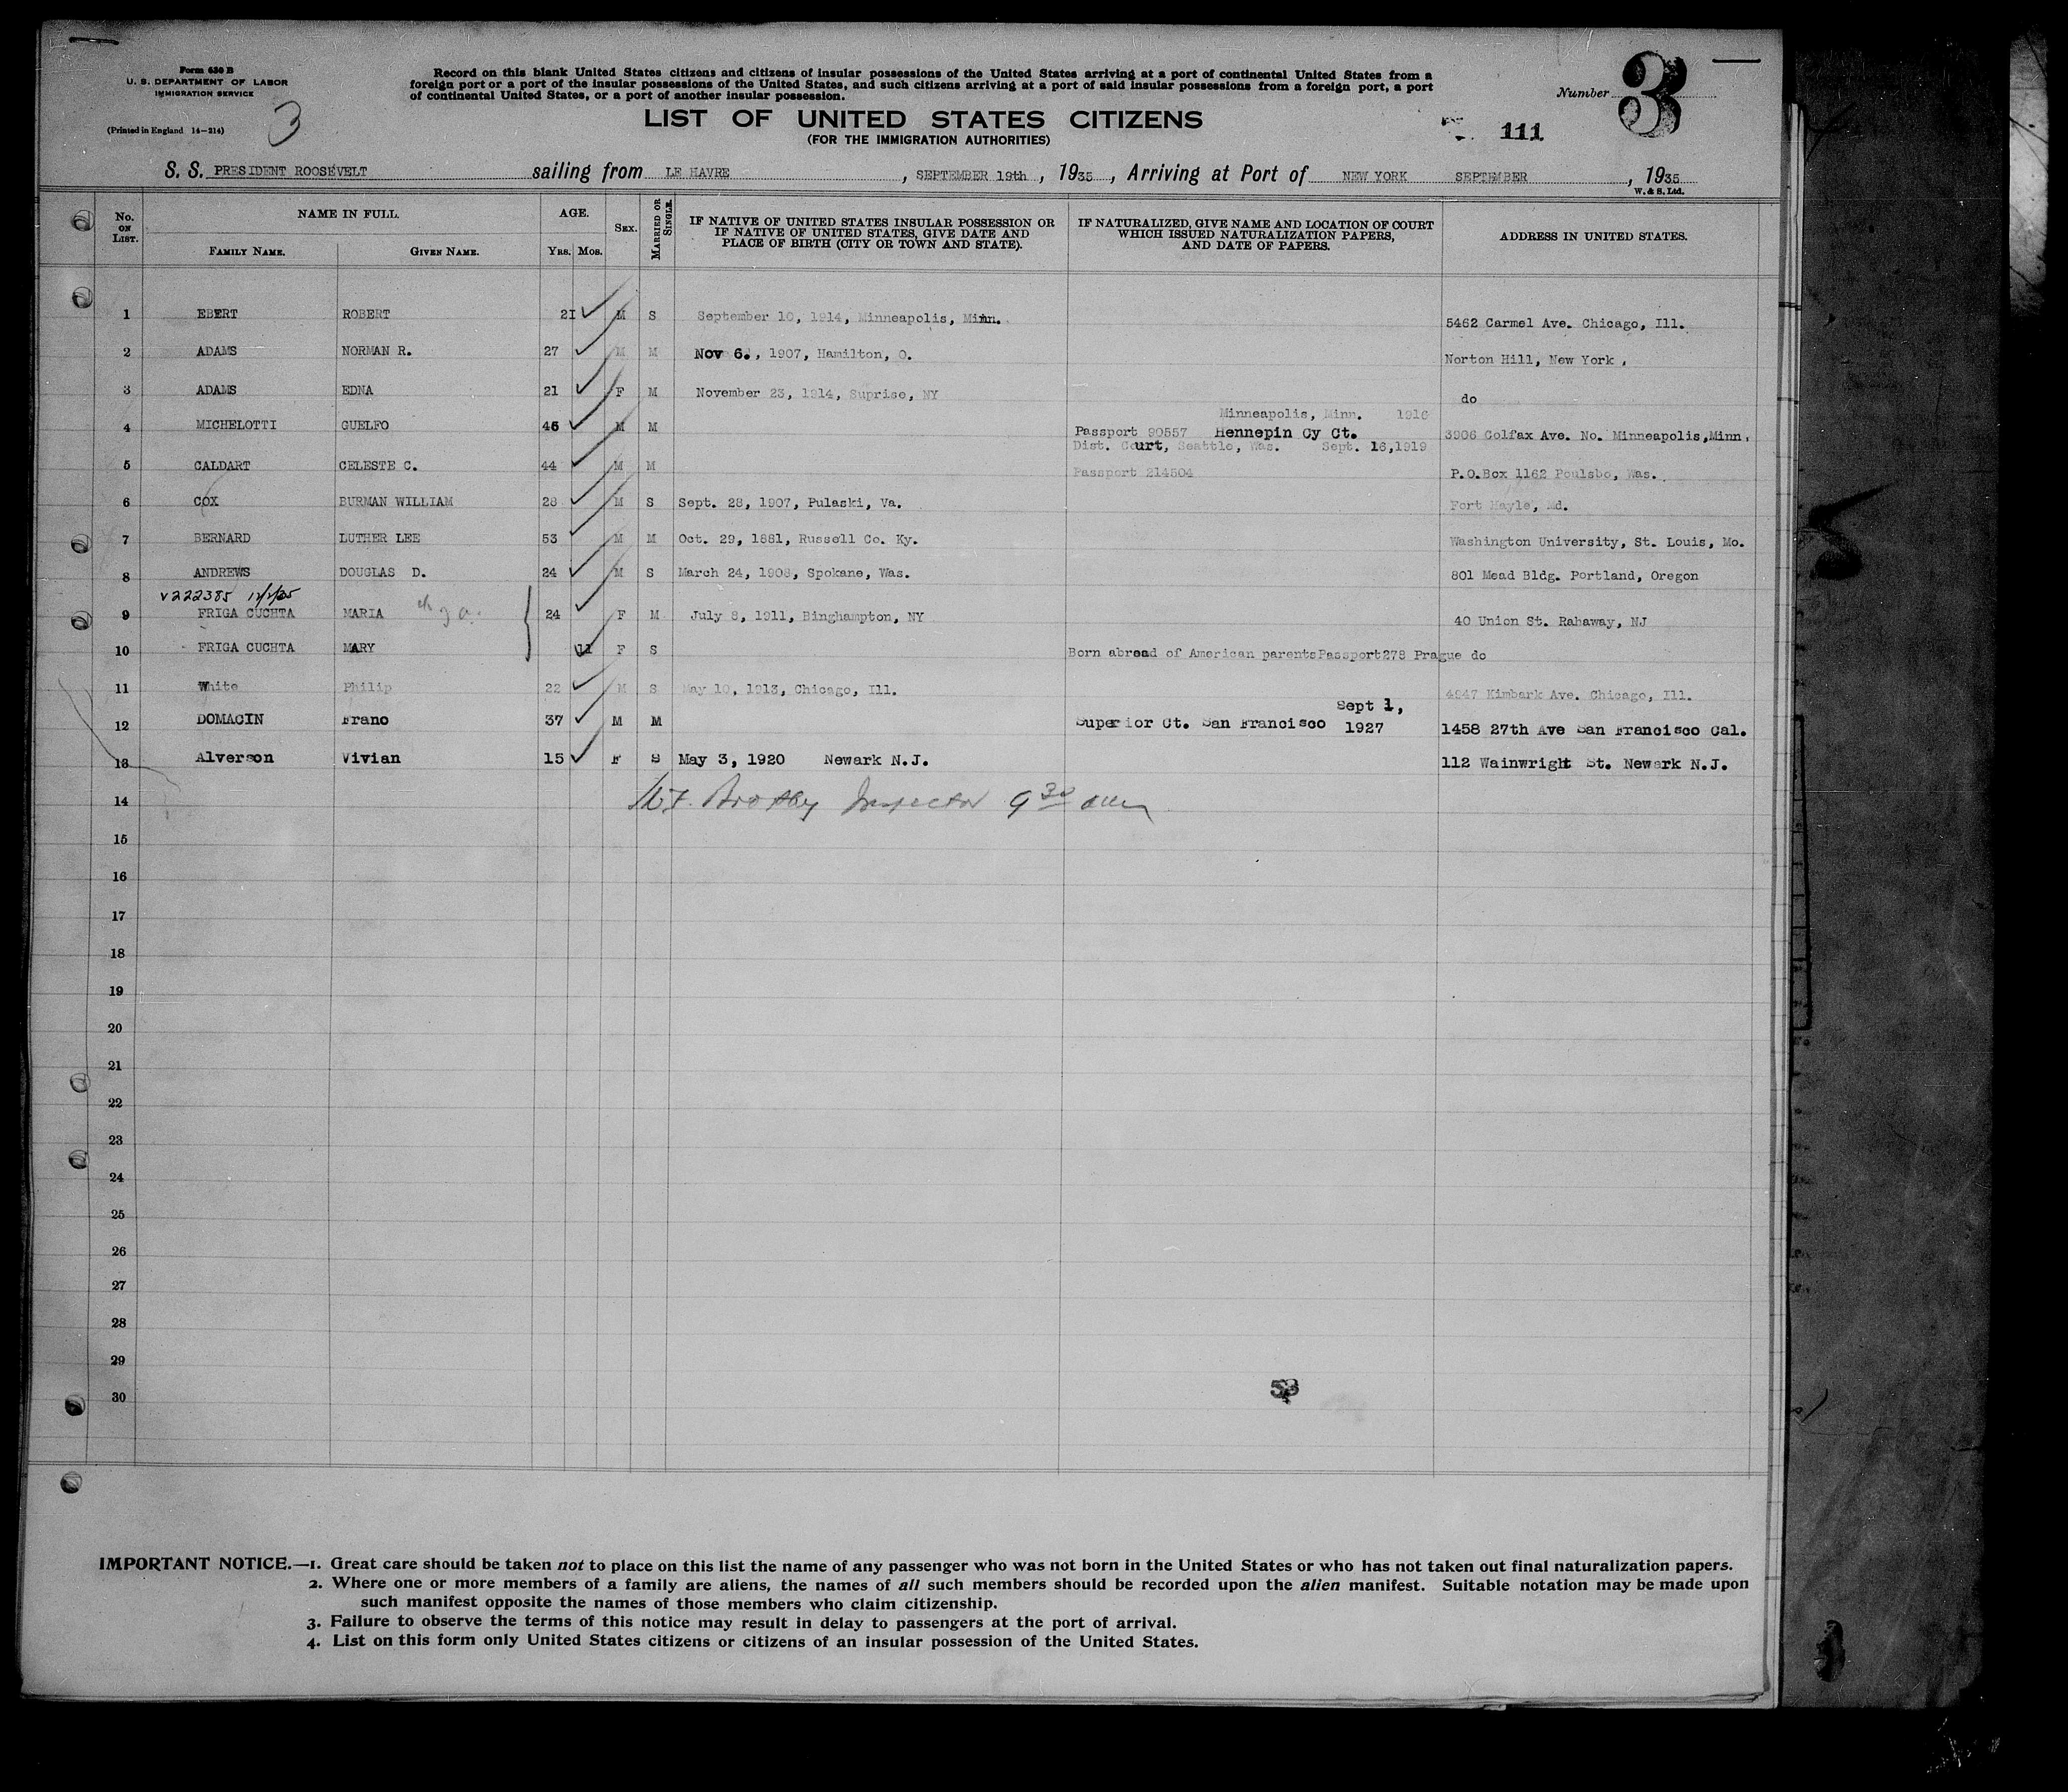 Form 630 B
U. S. DEPARTMENT OF LABOR
IMMIGRATION SERVICE
(Printed in England 14—214)
3
Record on this blank United States citizens and citizens of insular possessions of the United States arriving at a port of continental United States from a
foreign port or a port of the insular possessions of the United States, and such citizens arriving at a port of said insular possessions from a foreign port, a port
of continental United States, or a port of another insular possession.
LIST OF UNITED STATES CITIZENS
(FOR THE IMMIGRATION AUTHORITIES)
Number 3
111
S. S. PRESIDENT ROOSEVELT sailing from LE HAVRE, SEPTEMBER 19th, 1935, Arriving at Port of NEW YORK SEPTEMBER, 1935
W. & S. Ltd.
No. ON LIST. NAME IN FULL. AGE. SEX. MARRIED OR SINGLE. IF NATIVE OF UNITED STATES INSULAR POSSESSION OR IF NATIVE OF UNITED STATES, GIVE DATE AND PLACE OF BIRTH (CITY OR TOWN AND STATE). IF NATURALIZED, GIVE NAME AND LOCATION OF COURT WHICH ISSUED NATURALIZATION PAPERS, AND DATE OF PAPERS. ADDRESS IN UNITED STATES.
FAMILY NAME. GIVEN NAME. YRS. MOS.
1 EBERT ROBERT 21 M S September 10, 1914, Minneapolis, Minn. 5462 Carmel Ave. Chicago, Ill.
2 ADAMS NORMAN R. 27 M M Nov 6., 1907, Hamilton, O. Norton Hill, New York.
3 ADAMS EDNA 21 F M November 23, 1914, Suprise, NY do
Minneapolis, Minn. 1916
4 MICHELOTTI GUELFO 46 M M Passport 90557 Hennepin Cy Ct. 3906 Colfax Ave. No. Minneapolis, Minn.
Dist. Court, Seattle, Was. Sept. 16, 1919
5 CALDART CELESTE C. 44 M M Passport 214504 P.O.Box 1162 Poulsbo, Was.
6 COX BURMAN WILLIAM 28 M S Sept. 28, 1907, Pulaski, Va. Fort Hayle, Md.
7 BERNARD LUTHER LEE 53 M M Oct. 29, 1881, Russell Co. Ky. Washington University, St. Louis, Mo.
8 ANDREWS DOUGLAS D. 24 M S March 24, 1908, Spokane, Was. 801 Mead Bldg. Portland, Oregon
v222385
9 FRIGA CUCHTA MARIA 24 F M July 8, 1911, Binghampton, NY 40 Union St. Rahaway, NJ
10 FRIGA CUCHTA MARY 11 F S Born abroad of American parents Passport 278 Prague do
11 White Philip 22 M S May 10, 1913, Chicago, Ill. 4947 Kimbark Ave. Chicago, Ill.
Sept 1,
12 DOMACIN Frano 37 M M Superior Ct. San Francisco 1927 1458 27th Ave San Francisco Cal.
13 Alverson Vivian 15 F S May 3, 1920 Newark N.J. 112 Wainwright St. Newark N.J.
14 Inspector 9 30
15
16
17
18
19
20
21
22
23
24
25
26
27
28
29
30
53
IMPORTANT NOTICE.—1. Great care should be taken not to place on this list the name of any passenger who was not born in the United States or who has not taken out final naturalization papers.
2. Where one or more members of a family are aliens, the names of all such members should be recorded upon the alien manifest. Suitable notation may be made upon
such manifest opposite the names of those members who claim citizenship.
3. Failure to observe the terms of this notice may result in delay to passengers at the port of arrival.
4. List on this form only United States citizens or citizens of an insular possession of the United States.